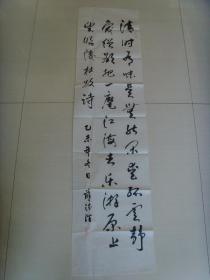 清时有味是無能闲愛孤雲靜
愛僧欲把一麾江海去乐游原上
望昭陵杜牧诗 乙未年冬日